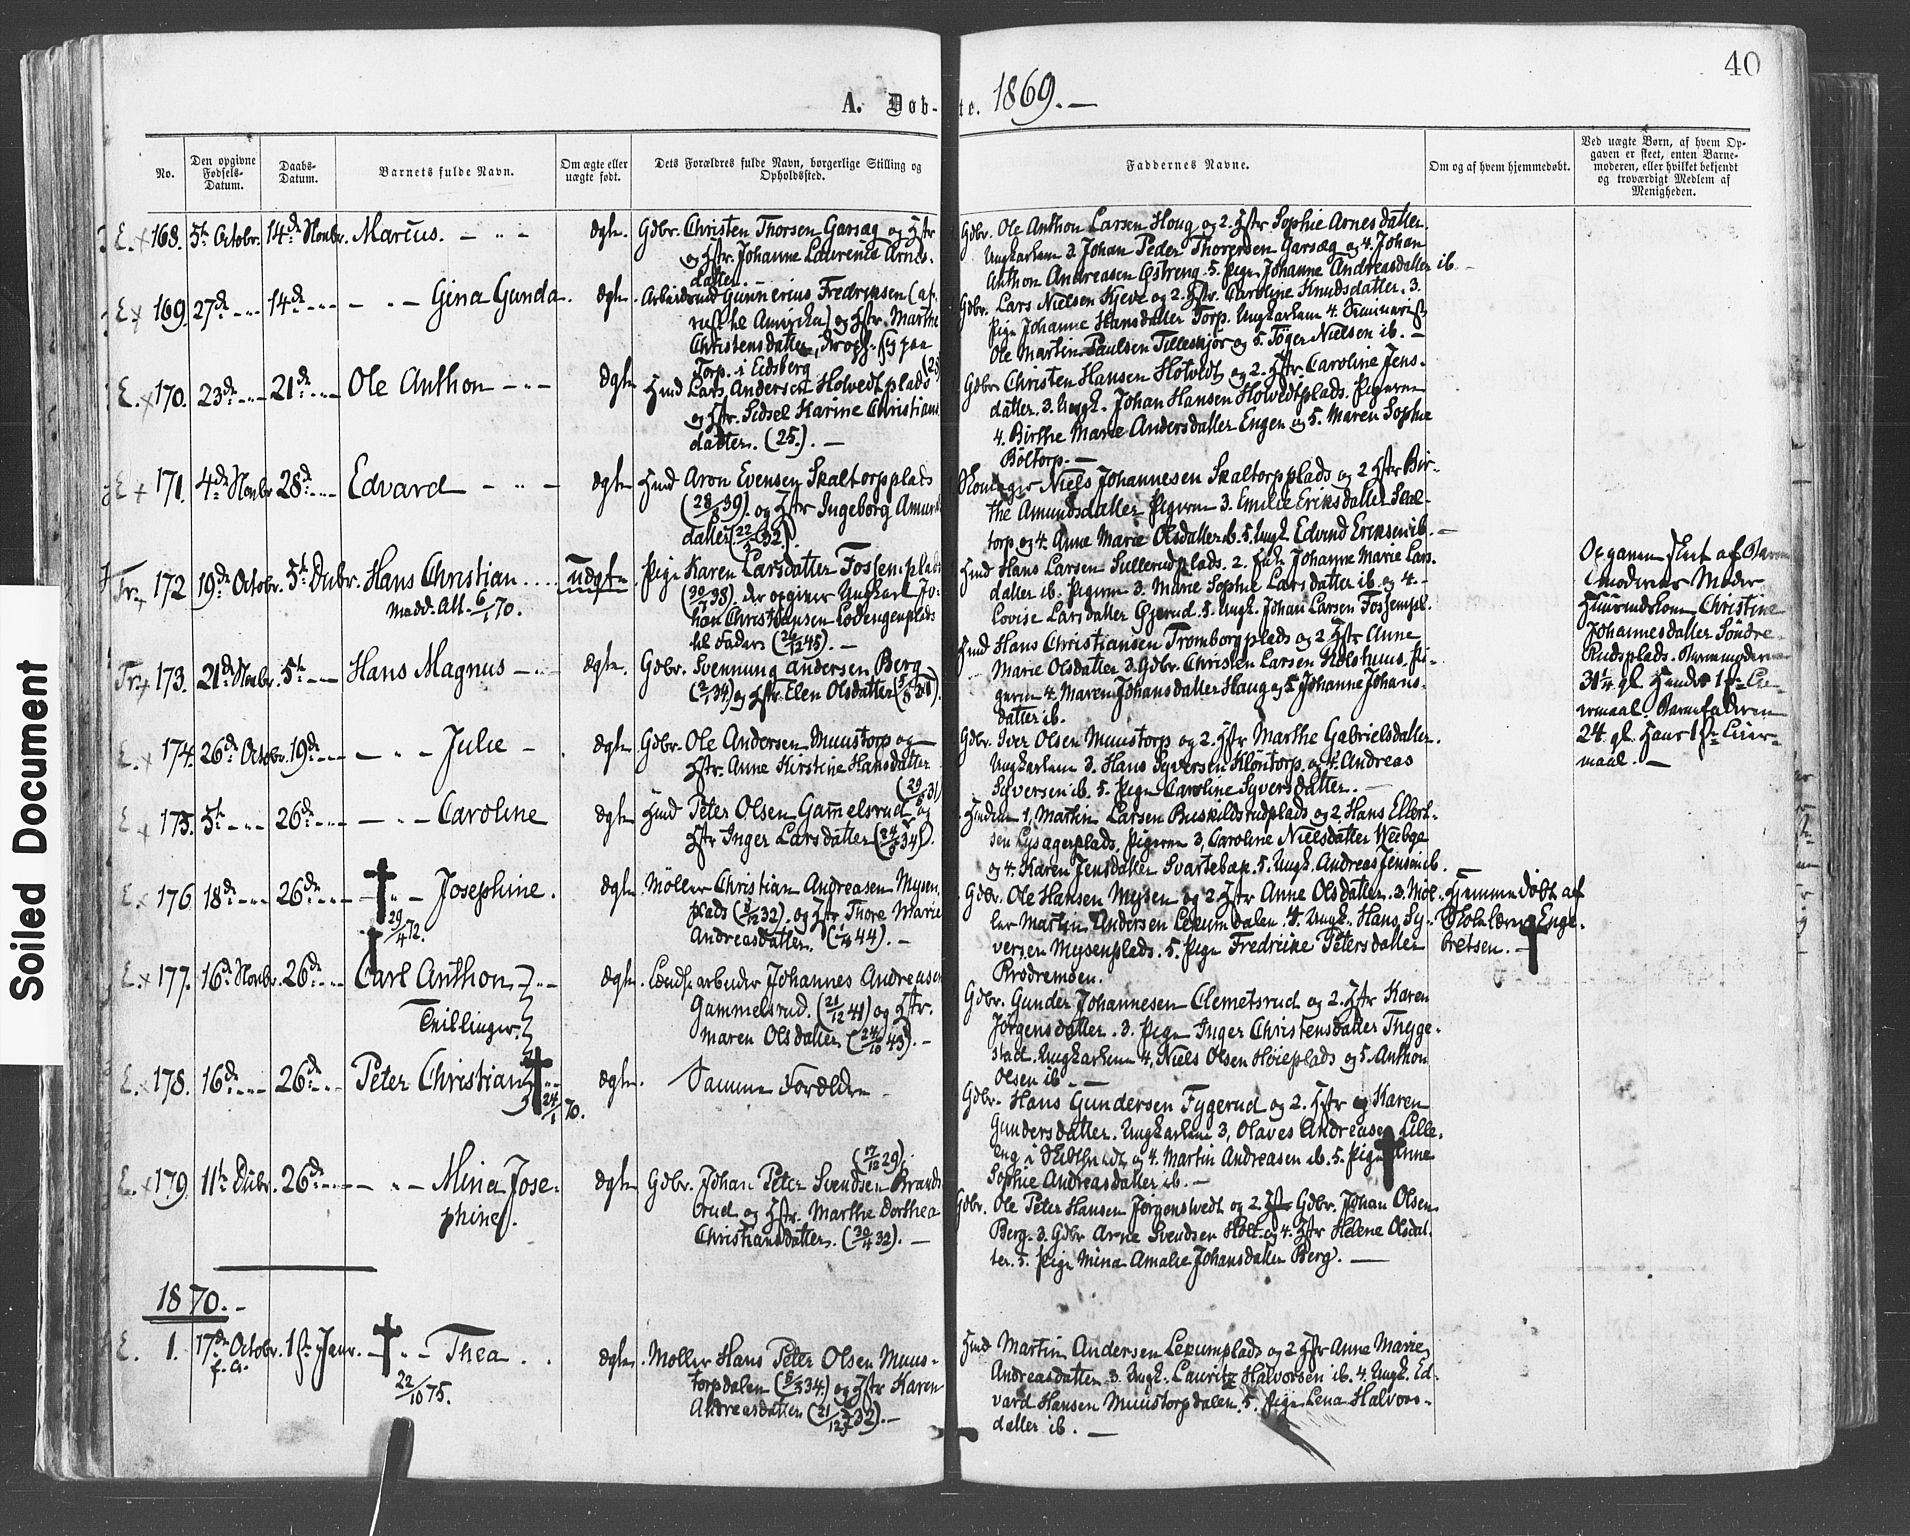 40
A. Døb-te. 1869.
No.
Den opgivne Fødsels-Datum.
Daabs-Datum.
Barnets fulde Navn.
Om ægte eller uægte født.
Dets Forældres fulde Navn, borgerlige Stilling og Opholdssted.
Faddernes Navne.
Om og af hvem hjemmedøbt.
Ved uægte Børn, af hvem Op-
gaven er skeet, enten Barne-
moderen, eller hvilket bekjendt
og troværdigt Medlem af
Menigheden.
E. 168. 5te Octobr. 14de Novbr. Marius. ægte. Gdbr. Christen Thorsen Garsæg og Hstr
og Hstr. Johanne Laurence Arnes-
datter.
Gdbr. Ole Anthon Larsen Houg og 2. Hstr Sophie Arnesdatter.
Ungkarlene 3. Johan Peder Thorersen Garsæg og 4. Johan
Anthon Andreasen Østreng. 5. Pige Johanne Andreasdatter ib.
E. 169. 27de 14de Gina Gunda. ægte. Arbeidsmd Gunnerius Fredriksen (af-
reist til Amerika) og Hstr. Marthe
Christensdatter, der oph. sig paa
Torp i Eidsberg
Gdbr. Lars Nielsen Kjeve og 2. Hstr. Caroline Knudsdatter. 3.
Pige Johanne Hansdatter Torp. Ungkarlene 4. Seminarist
Ole Martin Paulsen Tilleskjør og 5. Tøger Nielsen ib.
E. 170. 23de 21de Ole Anthon ægte Hmd Lars Andersen Holvedtplads
og Hstr. Sidsel Karine Christians
datter. (25).
Gdbr Christen Hansen Holvedt og 2. Hstr. Caroline Jens-
datter. 3. Ungk. Johan Hansen Holvedtplads. Pigerne
4. Birthe Marie Andersdatter Engen og 5. Maren Sophie
Boltorp.
E 171. 4de Novbr 28de Edvard ægte Hmd Aron Evensen Skaltorpplads
(28/8 39). og Hstr Ingeborg Amund
datter (22/3 32.)
Niels Johannesen Skaltorpplads og 2 Hstr Bir-
the Amundsdatter Pigerne 3. Emilie Eriksdatter Skal-
torp og 4. Anne Marie Olsdatter ib. 5. Ungk. Edvard Eriksen ib.
Tr. 172 19de Octobr. 5te Decbr. Hans Christian uægte. Pige Karen Larsdatter Fossemplads
madd. Att. 6/1 70.
(30/7 38). der opgiver Ungkarl Jo-
han Christiansen Lodengenplads
til Fader (26/12 45).
Hmd Hans Larsen Sullerudplads. 2. Johanne Marie Lars-
datter ib. Pigerne 3. Marie Sophie Larsdatter ib og 4.
Lovise Larsdatter Gjerud. 5. Ungk. Johan Larsen Fossempl.
Opgaven skeet af Barne
moderens Moder
Huusmdskone Christine
Johannesdatter Søndre-
Rudsplads. Barnemoderen
31¼ gl. Hendes 1ste Lei-
ermaal. Barnefaderen
24 gl. Hans 1ste Leier-
maal.
Tr. 173. 21de Novbr. 5te Hans Magnus ægte. Gdbr. Svennung Andersen Berg
(2/1 34) og Hstr. Elen Olsdatter
Hmd Hans Christiansen Tromborgplads og 2 Hstr Anne
Marie Olsdatter 3. Gdbr. Christen Larsen Kolshuus. Pi-
gerne 4. Maren Johansdatter Haug og 5 Johanne Johans-
datter ib.
E. 174. 26de Octobr. 19de Julie ægte Gdbr. Ole Andersen Muustorp og
Hstr. Anne Kirstine Hansdatter
Gdbr. Iver Olsen Muustorp og 2. Hstr Marthe Gabrielsdatter.
Ungkarlene 3. Hans Syversen Klontorp. og 4. Andreas
Syversen ib. 5. Pige Caroline Syversdatter.
E 175. 5te 26de Caroline ægte Hmd Peter Olsen Gammelsrud og
Hstr Inger Larsdatter (24/5 34).
Hmdene 1, Martin Larsen Buskildsrudplads og 2, Hans Ellert-
sen Lysagerplads. Pigerne 3, Caroline Nielsdatter Weebye
og 4. Karen Jensdatter Svartebæk. 5. Ungk. Andreas Jensen ib.
E 176 18de 26de Josephine. ægte. Møller Christian Andreasen Mysen
29/4 72.
plads (8/12 32). og Hstr Thore Marie
Andreasdatter.
Gdbr. Ole Hansen Mysen og 2 Hstr Anne Olsdatter. 3. Møl-
ler Martin Andersen Lekumdalen. 4. Ungk. Hans Sy-
versen Mysenplads. 5. Pige Fredrikke Petersdatter
Brødremoen.
Hjemmedøbt af
Skolelærer Enge-
bretsen.
E. 177. 16de Novbr. 26de Carl Anthon ægte. Landh arbeider Johannes Andreasen
Tvillinger.
Gammelsrud. (21/12 41) og Hstr.
Maren Olsdatter (24/10 43).
Gdbr. Gunder Johannesen Clemetsrud og 2. Hstr Karen
Jørgensdatter. 3. Pige Inger Christensdatter Thyge-
stad. Ungkarlene 4, Niels Olsen Høieplads og 5. Anthon
Olsen ib.
E. 178. 16de 26de Peter Christian ægte. Samme Forældre
24/1 70.
Gdbr. Hans Gundersen Fygerud og 2. Hstr og Karen
Gundersdatter. Ungkarlene 3, Olaves Andreasen Lille-
eng i og 4. Martin Andreasen ib. 5. Pige Anne
Sophie Andreasdatter ib.
E. 179 11te Decbr. 26de Mina Jose-
phine. ægte Gdbr. Johan Peter Svendsen Brands
(17/12 29).
rud og Hstr. Marthe Dorthea
Christiansdatter. (30/4 32).
Gdbr. Ole Peter Hansen Jørgenstvedt og 2. Hstr Gdbr. Johan Olsen
Berg. 3. Gdbr Arne Svendsen Holt og 4. Hstr Helene Olsdat-
ter. 5. Pige Mina Amalie Johansdatter Berg.
1870.
E. 1. 17de Octobr. 1ste Janr. Thea ægte. Møller Hans Peter Olsen Muus-
f. A. 22/10 75.
torpdalen (8/8 34.) og Hstr Karen
Andreasdatter
Hmd Martin Andersen Lekumplads og 2 Hstr Anne Marie
Andreasdatter 3. Ungk. Lauritz Halvorsen ib. 4. Ungk. Ed-
vard Hansen Muustorpdalen. 5. Pige Lena Halvors-
datter ib.
Soiled Document